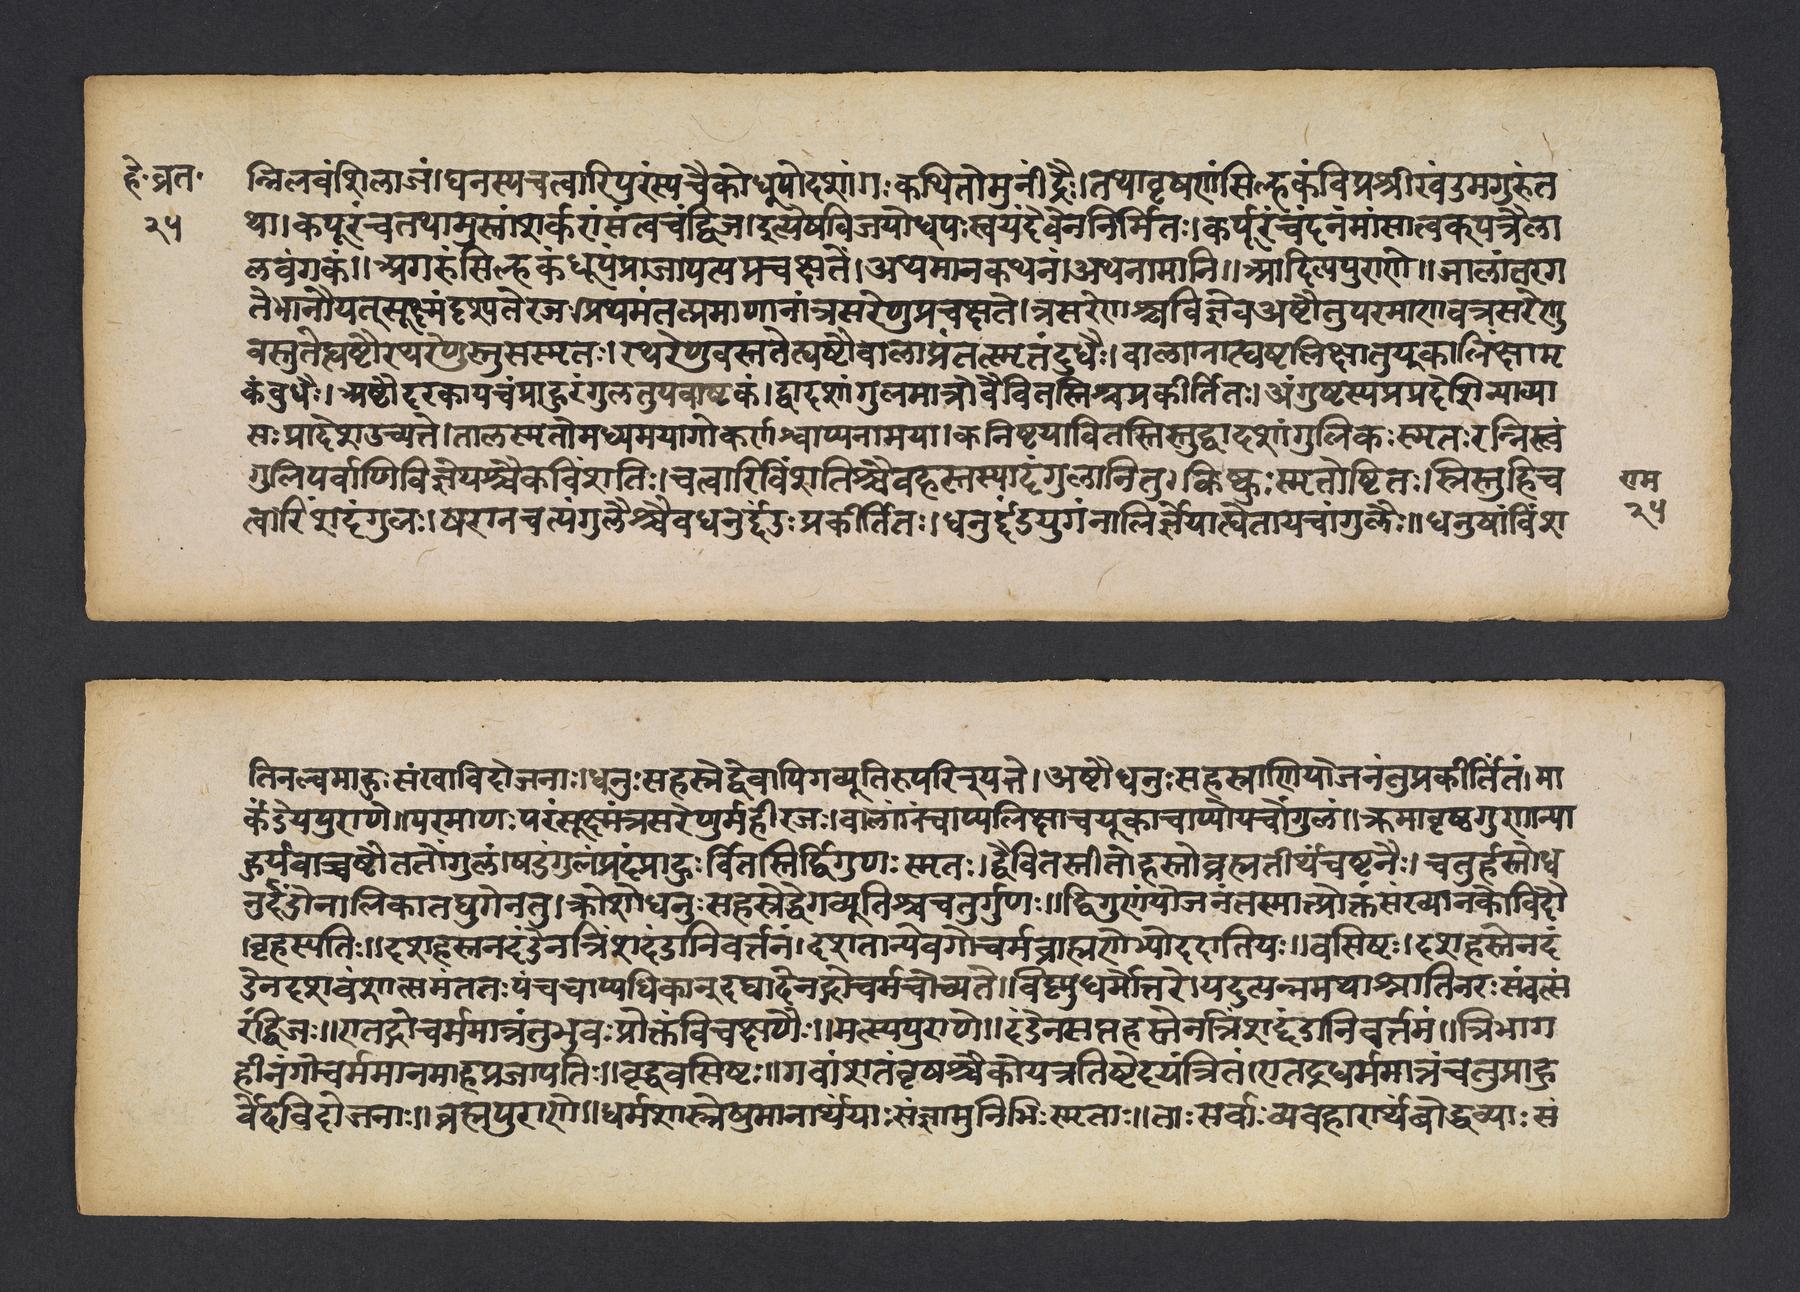 हे॰ व्रत॰
२५
न्निलवंशिलाजं।घनस्यचत्वारिपुरंस्यचैकोधुपोदशांगःकथितोमुनींद्रैः।तथावृषणंसिल्हकंविप्रश्रीखंडमगुरुंत
था।कपूरंचतथामुस्तांशर्करांसंत्वचंद्विज।दुत्येषविजयोधुपःस्वयंदेवेननिर्मितः।कर्पूरंचंदनंमांसात्वकपत्रैला
लवंगकं॥अगरुंसिल्हकंधूपंप्राजापत्यप्रचक्षते।अथमानकथनं।अथनामानि॥आदित्यपुराणे॥जालांतरग
तेभानौयत्सूक्ष्मंदृश्यतेरजः।प्रथमंतत्प्रमाणानांत्रसरेणुप्रचक्षते।त्रसरेणश्चविज्ञेवअष्टौतुपरमाणवत्रसरेणु
वस्तुतेह्यष्टौरथरेणुस्तुसस्मृतः।रथरेणुवस्ततेत्यष्टौवालाग्रंतत्स्मृतंदुधैः।वालाग्नात्यष्टलिक्षातुयूकालिंक्षाम
कंबुधैः।अष्टौदूरकायचंप्राहुरंगुलतुयवाष्टकं।द्वादशांगुलमात्रोवैवितस्तिश्चप्रकीर्तितः।अंगुष्टस्यप्रप्रदेशिन्याव्या
सःप्रादेशउच्यते।तालस्मृतोमध्यमयागोकर्णश्वाप्यनामया।कनिष्टयावितस्तिस्तुद्वादशांगुलिकःस्मृतःरन्निस्त्वं
गुलिपर्वाणिविज्ञेयश्चैकविंशतिः।चत्वारिविंशतिश्चैवहस्तस्यादंगुलानितु।किष्कुःस्मृतोष्टितः।स्निस्तुहिच
त्वारिंशदंगुलः।षणनचत्यंगुलैश्चैवधनुर्दंडःप्रकीर्तितः।धनुर्दंडयुगंनालिर्ज्ञेयात्यैतायचांगुलैः॥धनुषांविंश
राम
२५
तिनल्वमाहुःसंखाविदोजनाः।धनुःसहस्त्रेद्वेवापिगव्यूतिरुपरिचुपत्ते।अष्टौधनुःसहस्त्राणियोजनंतुप्रकीर्तितं।मा
र्कंडेयपुराणे॥परमाणःपरंसूक्ष्मंत्रसरेणुर्महीरजः।वालांग्नंचाप्यलिक्षाचयूकाचाप्यौयचोंगुलं॥क्रमावृष्टगुणान्या
हुर्यंवाच्चष्टौततोंगुलं।षडंगुलंप्रदंप्राहुःर्वितस्तिर्द्विगुणःस्मृतः।द्वैवितस्तीतोहस्तोब्रह्मतीर्थंचष्टनैः।चतुर्हस्तोध
नुर्दंडोनालिकातघुगेनतु।क्रोशोधनुःसहस्त्रेद्वेगव्यूतिश्चचतुर्गुणः॥द्विगुणंयोजनंतस्मात्प्रोक्तंसंख्यानकोविदौ
।वृहस्पतिः॥दशहस्तनदंडेनत्रिंशदंडानिवर्त्तनं।दशतान्येवगोचर्मब्राह्मणेभ्योददातियः॥वसिष्टः।दशहस्तेनदं
डेनदशवंशात्समंततःपंचचाप्यधिकानुदघादेनद्गोचर्मचोच्यते।विष्णुधर्मोत्तरे।यदुत्पन्नमथाश्नातिनरःसंवत्सं
रंद्विजः॥एतद्गोचर्ममात्रंतुभुवःप्रोक्तंविचक्षणैः॥मत्स्यपुराणे॥दंडेनसप्तहस्तेनत्रिंशद्दंडानिवर्त्तमं॥त्रिभाग
हीनंगोचर्ममानमाहप्रजापतिः॥वृद्धवसिष्टः॥गवांशतंवृषश्चैकोयत्रतिष्टेदयंत्रितं।एतद्दुधर्ममात्रंचतुप्राहु
र्वेदविदोजनाः॥ब्रह्मपुराणे॥धर्मशास्त्रेषुमानार्थंयाःसंज्ञामुनिभिःस्मृताः॥ताःसर्वाःव्यवहारार्थंबोद्धव्याःसं